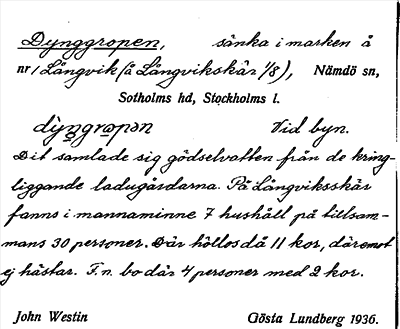 Dynggropen, sänka i marken å
nr 1 Långvik (å Långvikskär 1/8), Nämdö sn,
Sotholms hd, Stockholms l.
dy̆ngropən Vid byn.
Dit samlade sig gödselvatten från de kring-
liggande ladugårdarna. På Långviksskär
fanns i mannaminne 7 hushåll på tillsam-
mans 30 personer. Där höllos då 11 kor, däremot
ej hästar. F.n. bo där 4 personer med 2 kor.
John Westin Gösta Lundberg 1936.